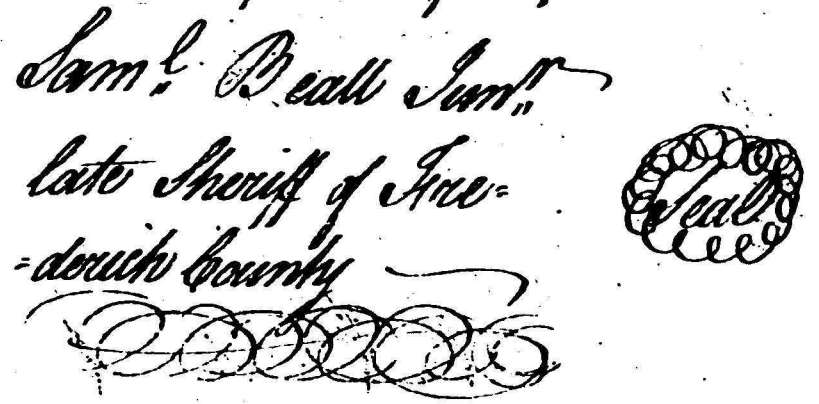 Saml. Beall Junr.
late Sheriff of Fre=
=derich County
Seal